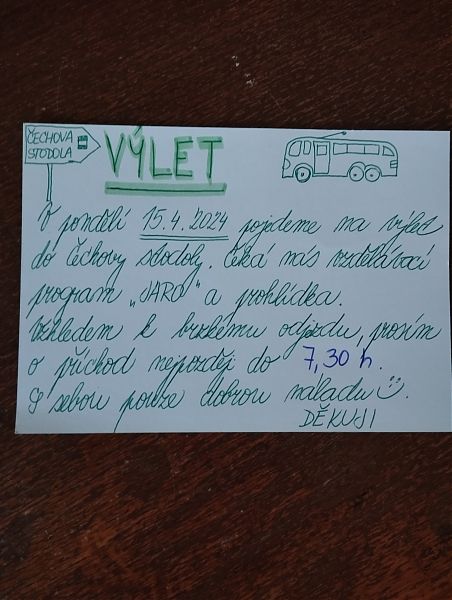 ČECHOVA
STODOLA
VÝLET
V pondělí 15.4.2024 pojedeme na výlet
do Čechovy stodoly. Čeká nás vzdělávací
program „JARO" a prohlídka.
Vzhledem k brzkému odjezdu, prosím
o příchod nejpozději do 7,30 h.
S sebou pouze dobrou náladu
DĚKUJI